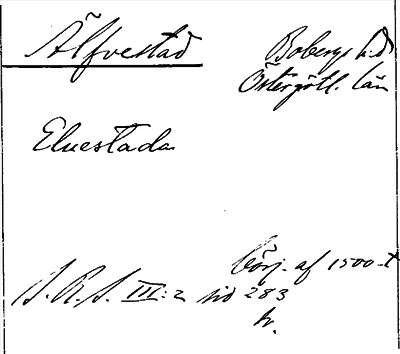 Älfvestad Bobergs hd
Östergötl. län
Eluestada
börj. af 1500-t
S. R. S. III:2 sid 283
hr.